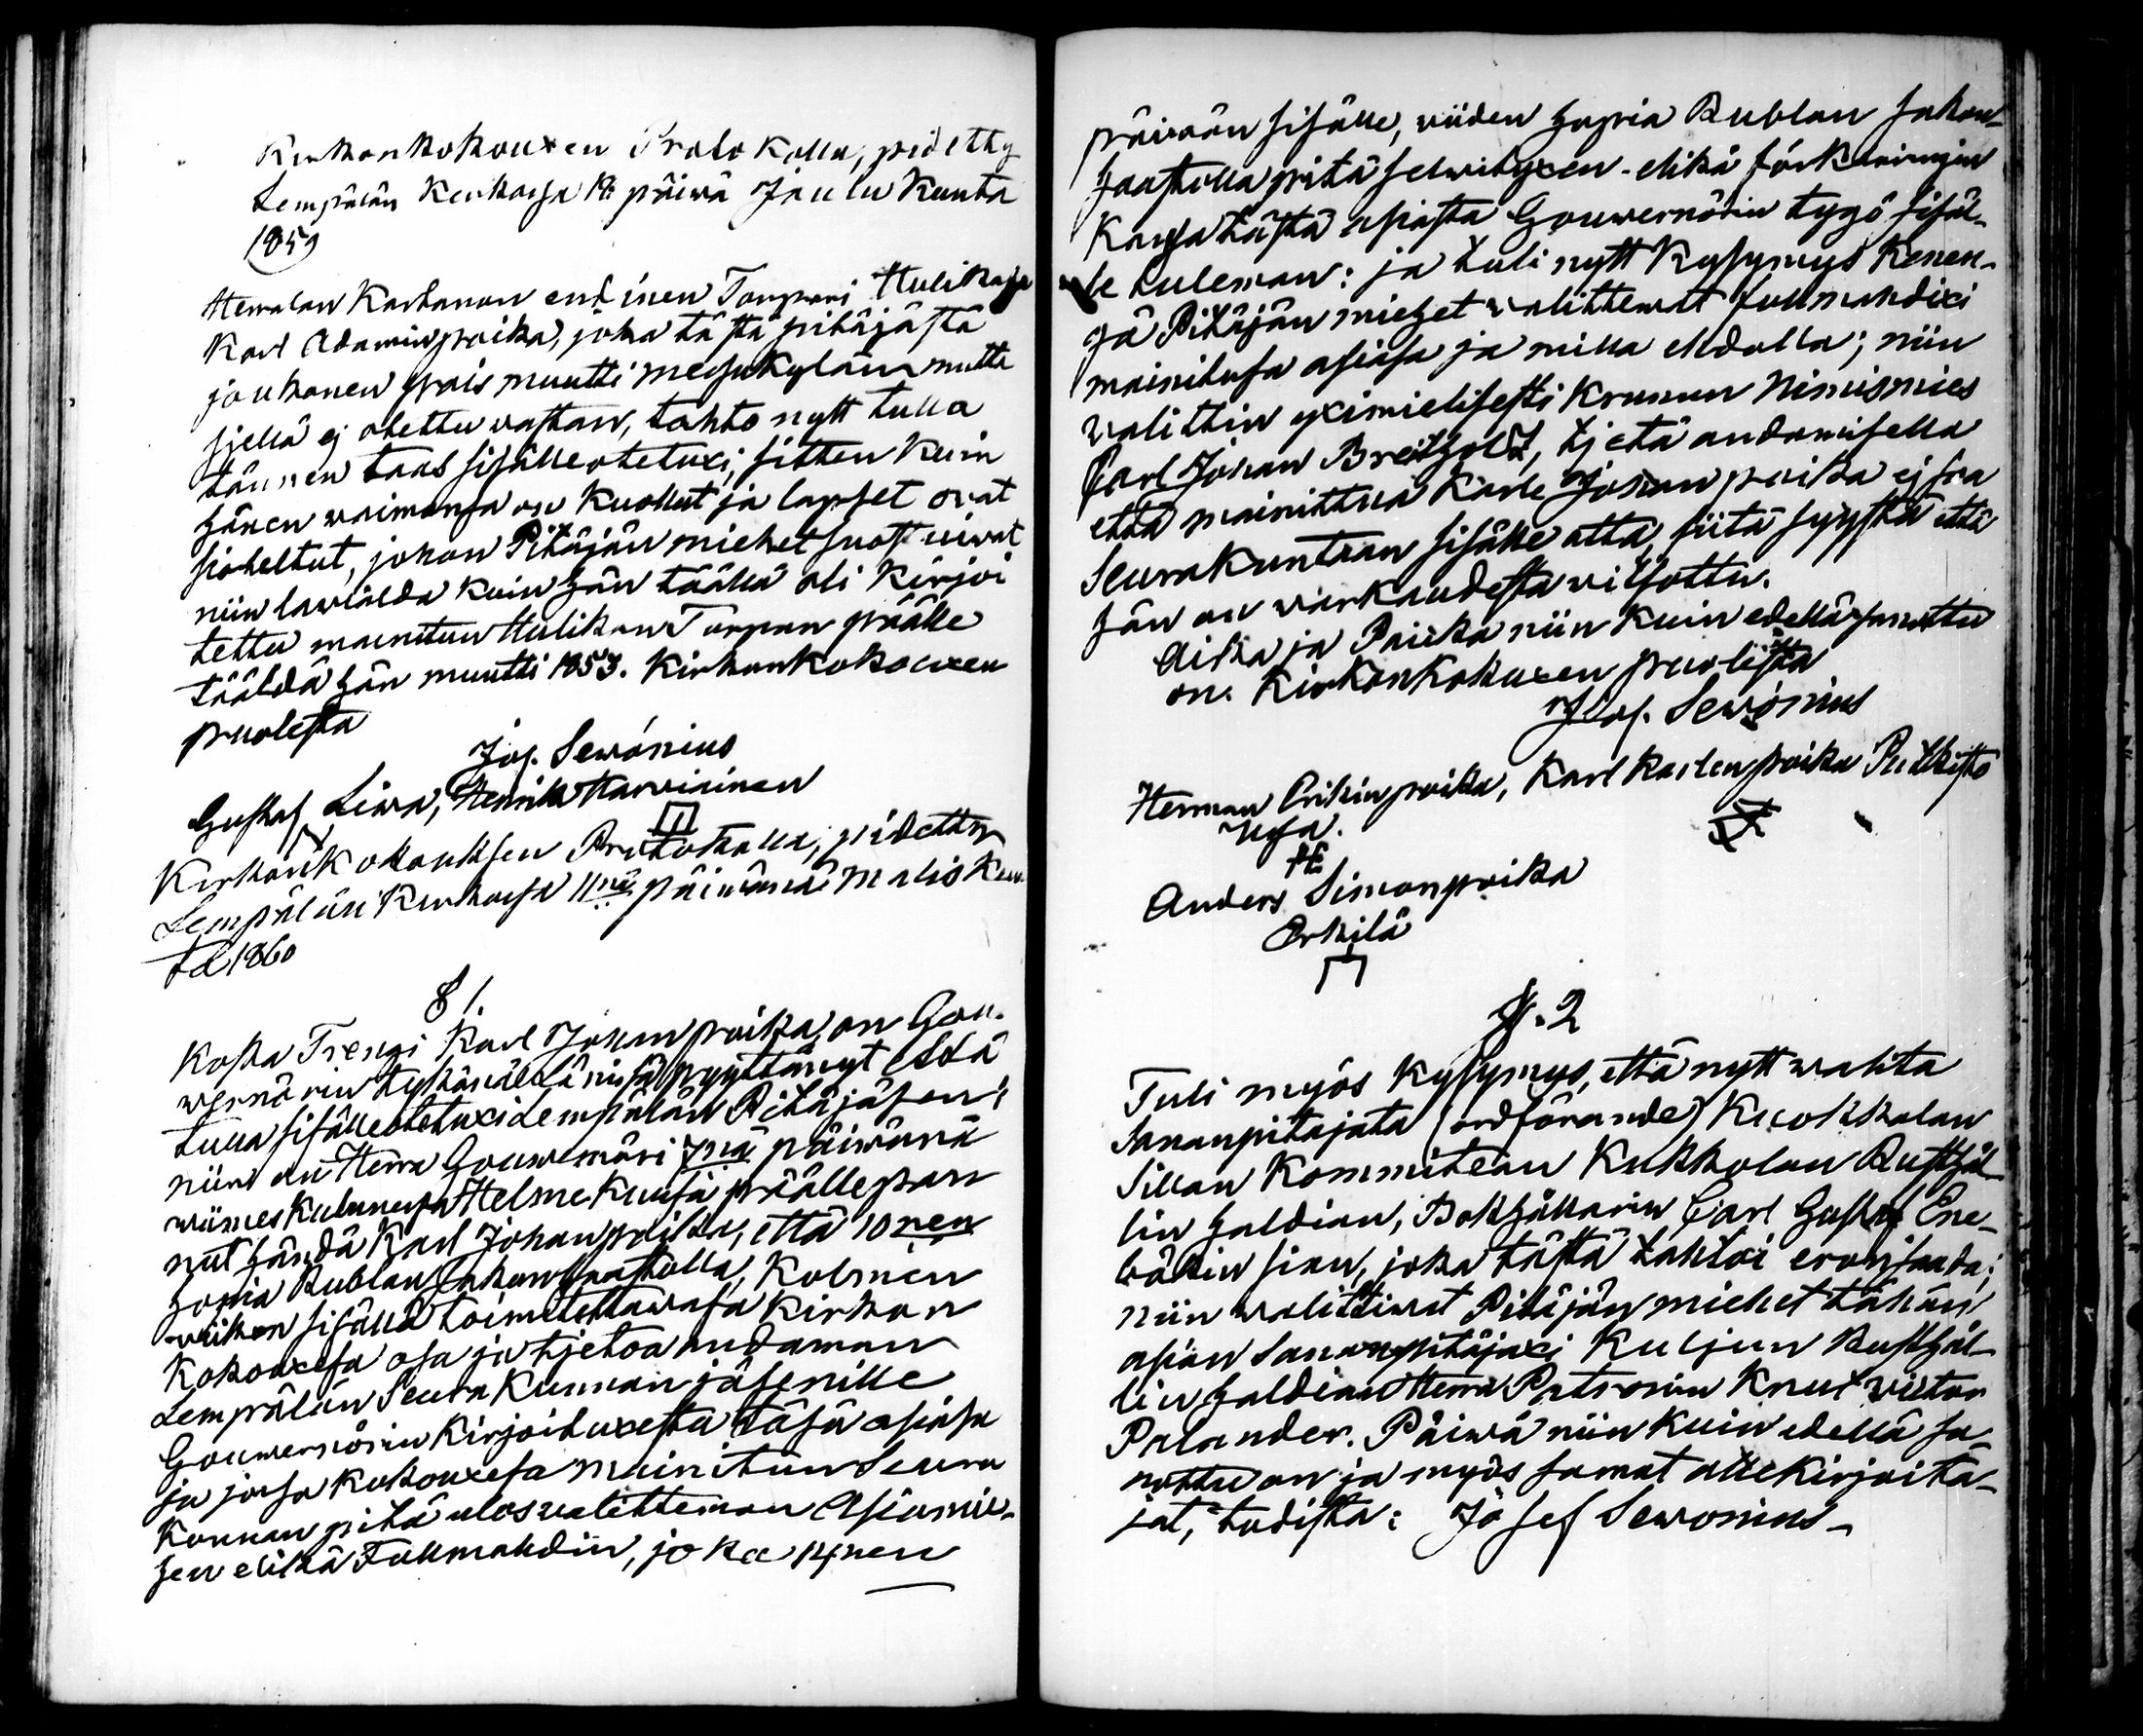 Kirkonkokouxen Protokolla, pidetty
Lempälän Kirkossa 18 päiwä Joulu Kuuta
1859
Herralan Kartanon endinen Torppari Hulikasa
Karl Adaminpoika, joka tästä pitäjästä
joukonen pois muutti Messukylään mutta
sjellä ej otettu vastan, tahto nytt tulla
tännen taas sisälleotetuxi, sitten kuin
hänen waimonsa on kuollut ja lapset ovat
sioteltut, johon Pitäjän miehet suostuiwat
niin lawialda kuin hän täällä oli kirjoi
tettu mainitun Hulikan Torpan päälle
tääldä hän muutti 1853. Kirkonkokouxen
puolesta
Jos. Sewónius
Gustaf Liwa, Henrik Harwiainen
Kirkonkokouksen Protokolla, pidetty
Lempälän Kirkossa 11nä päiwänä Malis Kuu
ta 1860
§ 1.
Koska Trengi Karl Johanpoika on Gou-
wernörin tykönä pyytänyt että
tulla sisälleotetuxi Lempälän Pitäjäsen;
niin on Herra Gouwernöri 7nä päiwänä
wiimes kuluneesa Helmekuusa päällepan
nut händä Karl Johanpoika, että 10nen
hopia Rublan sakonhaastolla, Kolmen
wiikon sisällä toimitettawasa Kirkon
Kokouxesa osa ja tjetoa andaman
Lempälän Seurakunnan jäsenille
Gouwernörin Kirjoituxesta täsä asiasa
ja josa Kokouxesa mainitun Seura
Kunnan pitä ulosvalitteman Asiamie-
sen elikkä Fullmahdin, joka 14nen
päiwän sisälle, wiiden hopia Rublan sakon
haastolla pitä selwityxen elikä förklaringin
Kansa tästä asiasta Gouwernörin tygö sisäl-
le tuleman: ja tuli nytt Kysymys Kenen-
gä Pitäjän miehet walittewat fullmahdixi
mainitusa asiasa ja milla ehdolla; niin
walittin yximielisesti Krunun Nimismies
Carl Johan Breitholtz, tjetä andamisella
että mainittua Karle Johanpoika ej saa
Seurakuntaan sisälle otta, siitä syystä että
hän on warkaudesta wilsottu.
Aika ja Paikka niin kuin edellä sanottu
on. Kirkonkokuxen puolesta
Jos. Sewónius
Herman Erikinpoika, Karl Karlenpoika
Anders Simonpoika
Erkilä
§. 2
Tuli myös Kysymys, että nytt walita
Sananpitajata (ordförande) Kuokkalan
Sillan Kommitean Kukkolan Rusthål-
lin haldian, Bokhållarin Carl Gustaf Ene-
bäkin sian, joka tästä tahtoi eronsaada;
niin walittiwat Pitäjän miehet tähän
asian Sananpitäjaxi Kuljun Rusthål-
lin haldian Herra Patronin Knut Victor
Palander. Päiwä niin kuin edellä sa-
nottu on ja myös samat allekirjoita-
jat, todista: Josef Sewonius-